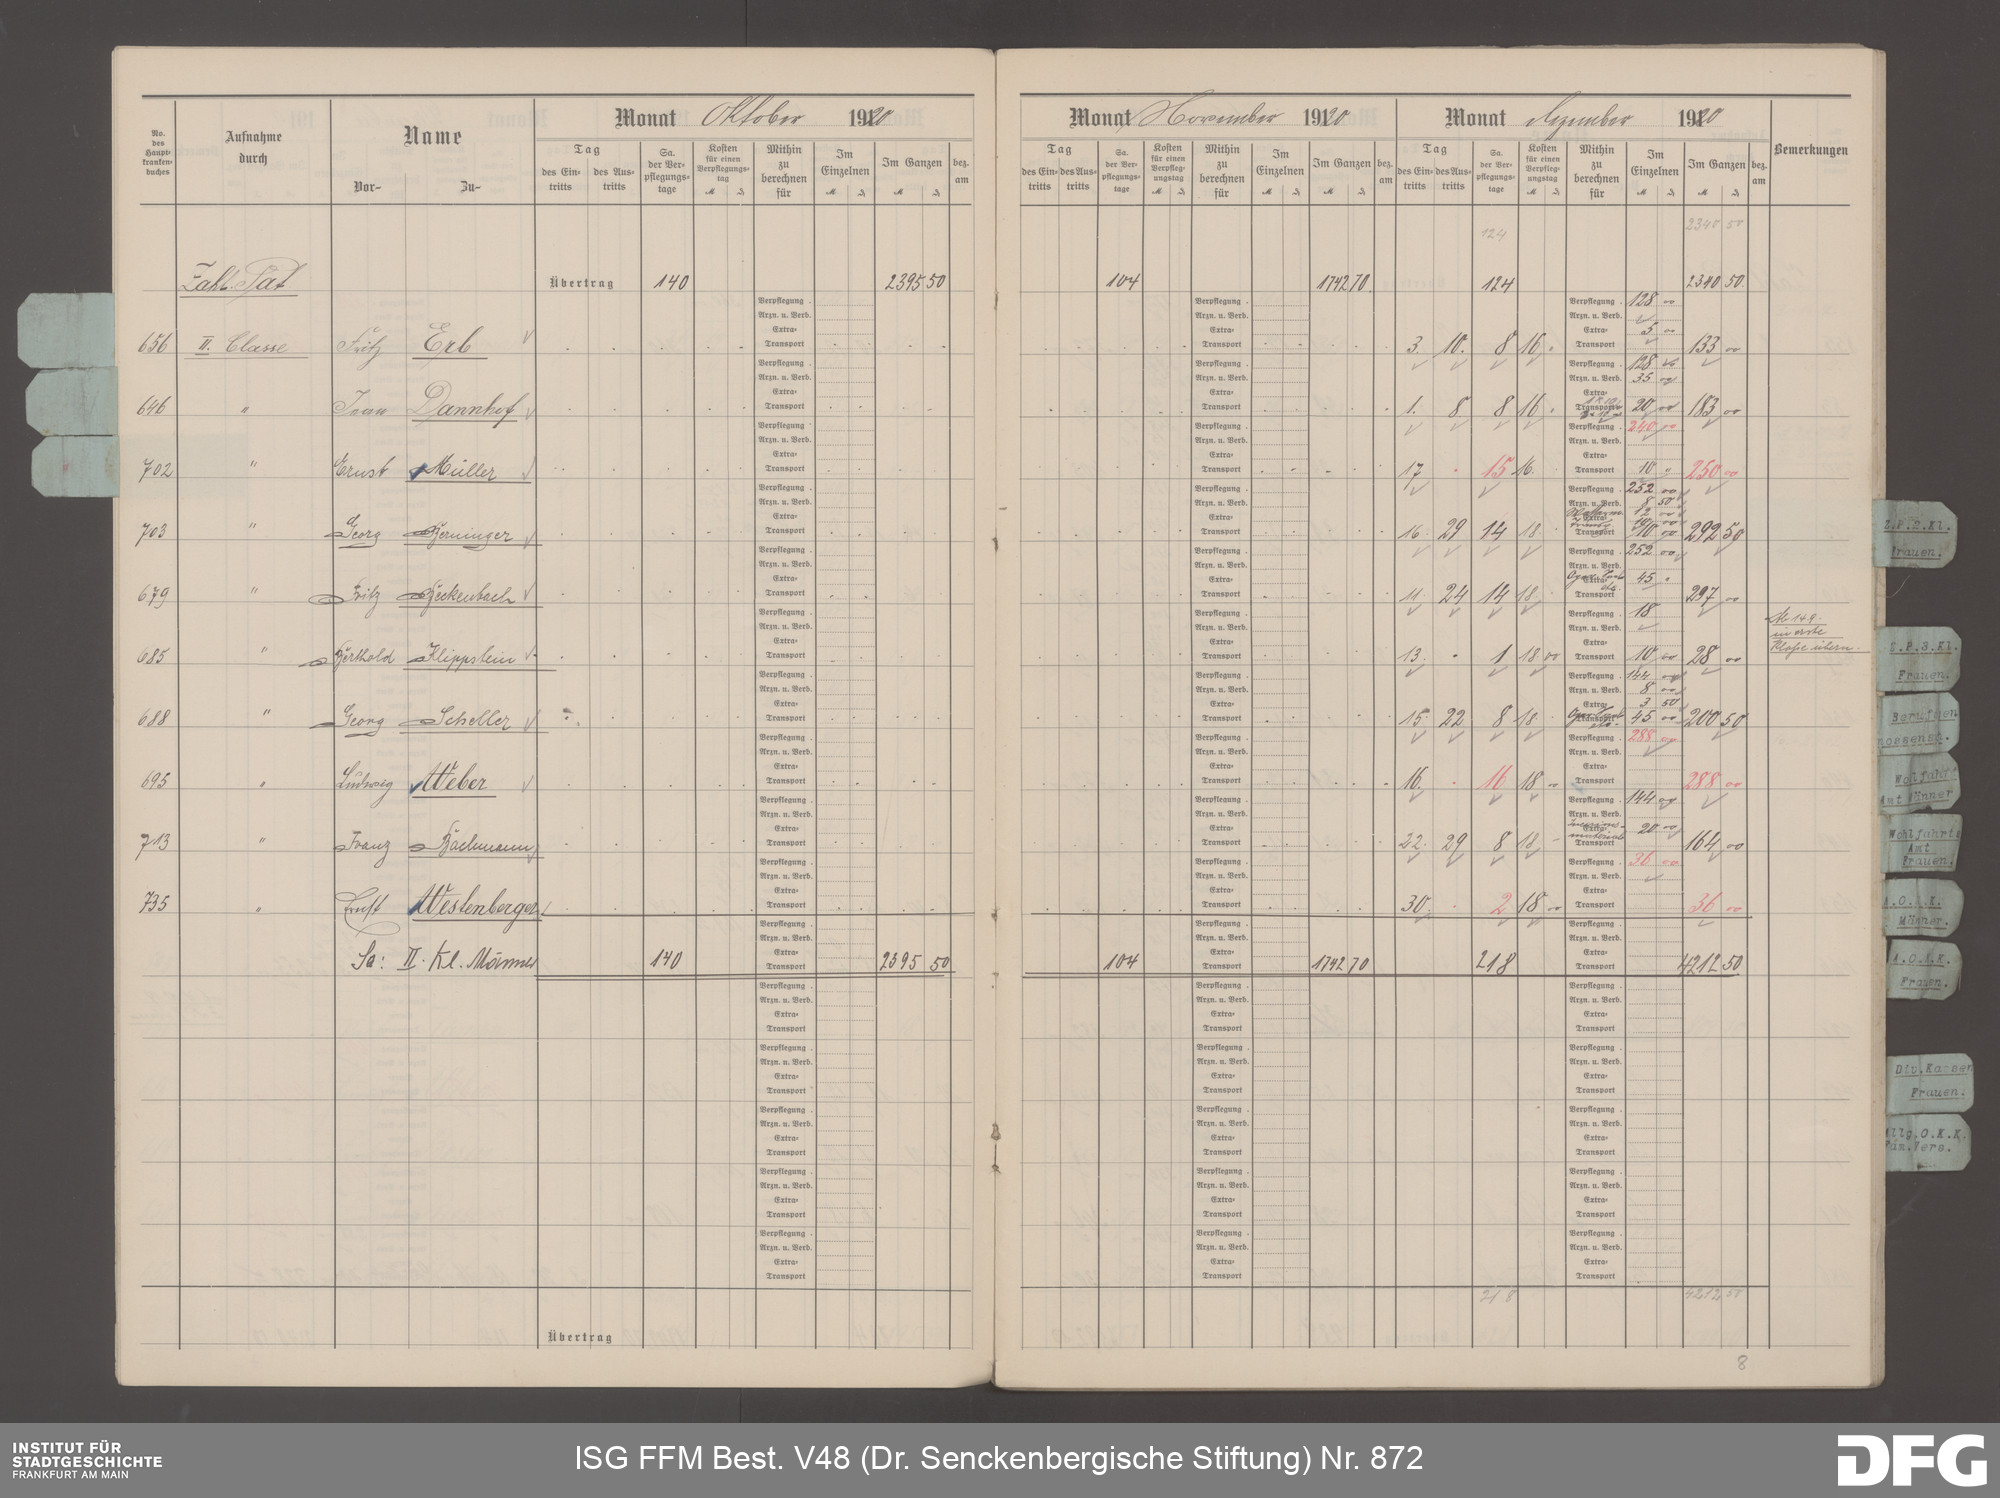 Monat Oktober 1920
Monat November 1920
Monat Dezember 1920
No. des Haupt-krankenbuches
Aufnahme durch
Name
Vor-
Zu-
Tag
des Eintritts
des Austritts
Sa. der Verpflegungstage
Kosten für einen Verpflegungstag
M
Mithin zu berechnen für
Im Einzelnen
Im Ganzen
bez. am
Bemerkungen
124 2340 50
Zahl. Pat Übertrag 140 2395 50 104 1742 70 124 2340 50
Verpflegung 128 00
Arzn. u. Verb.
Extra- 5 00
Transport
656 II. Classe Fritz Erb 3. 10. 8 16 133 00
Verpflegung 128 00
Arzn. u. Verb. 35 00
Extra-
Transport 20 00
646 " Dannhof 1. 8 8 16 183 00
Verpflegung 240 00
Arzn. u. Verb.
Extra-
Transport 10
702 " Ernst Müller 17 15 16 250 00
Verpflegung 252 00
Arzn. u. Verb. 8 50
Extra- 12 00
Transport 10 00
703 " Georg Berninger 16 29 14 18 292 50
Verpflegung 252 00
Arzn. u. Verb.
Extra- 45
Transport
679 " Fritz Heckenbach 11 24 14 18 297 00
Verpflegung 18
Arzn. u. Verb.
Extra-
Transport 10 00
685 " Berthold Klippstein 13. 1 18 00 28 00
in erste
Verpflegung 144 00
Arzn. u. Verb. 8 00
Extra- 3 50
Transport 45 00
688 " Georg Scheller 15 22 8 18 200 50
Verpflegung 288 00
Arzn. u. Verb.
Extra-
Transport
695 " Ludwig Weber 16. 16 18 00 288 00
Verpflegung 144 00
Arzn. u. Verb.
Extra- 20 00
Transport
713 " Franz Bachmann 22. 29 8 18 164 00
Verpflegung 36 00
Arzn. u. Verb.
Extra-
Transport
735 " Ernst Westenberger 30 2 18 00 36 00
Sa: II. Kl. Männer 140 2395 50 104 1742 70 218 4212 50
218 4212 50
Übertrag
8
Z.P.2.Kl.
Frauen.
Z.P.3.Kl.
Frauen.
Berufsgen
nossensch.
Wohlfahrts
Amt Männer
Wohlfahrts
Amt
Frauen.
A.O.K.K.
Männer.
A.O.K.K.
Frauen.
Div.Kassen
Frauen.
Allg.O.K.K.
Fam.Vers.
INSTITUT FÜR
STADTGESCHICHTE
FRANKFURT AM MAIN
ISG FFM Best. V48 (Dr. Senckenbergische Stiftung) Nr. 872
DFG